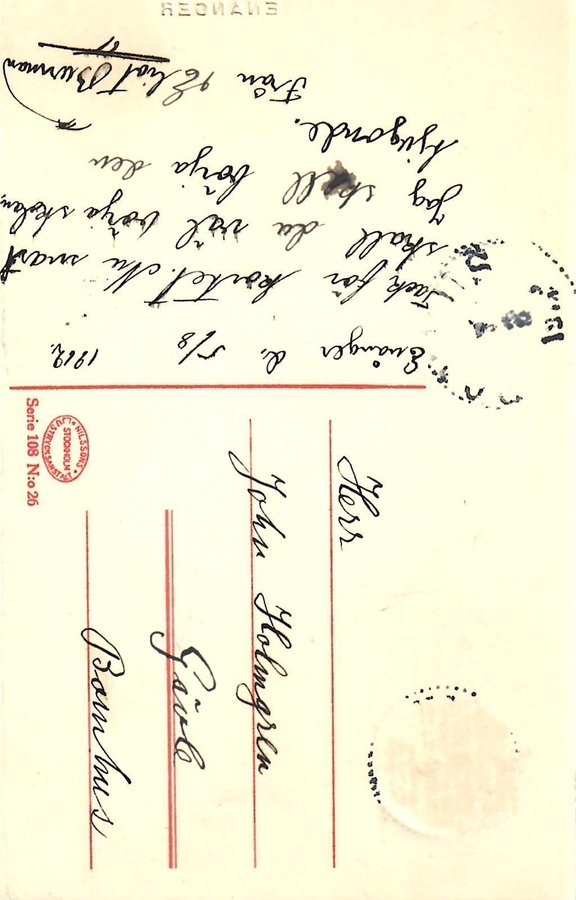 Enånger d. 5/8 1912.
Tack för kortet. Nu snart
skall du väl börja skolan.
Jag skall börja den
tjugonde.
Från Burman
ENANGER
Herr
John Holmgren
Gävle
Bomhus
NILSSONS LJUSTRYCKSANSTALT
STOCKHOLM
Serie 108 N:o 26